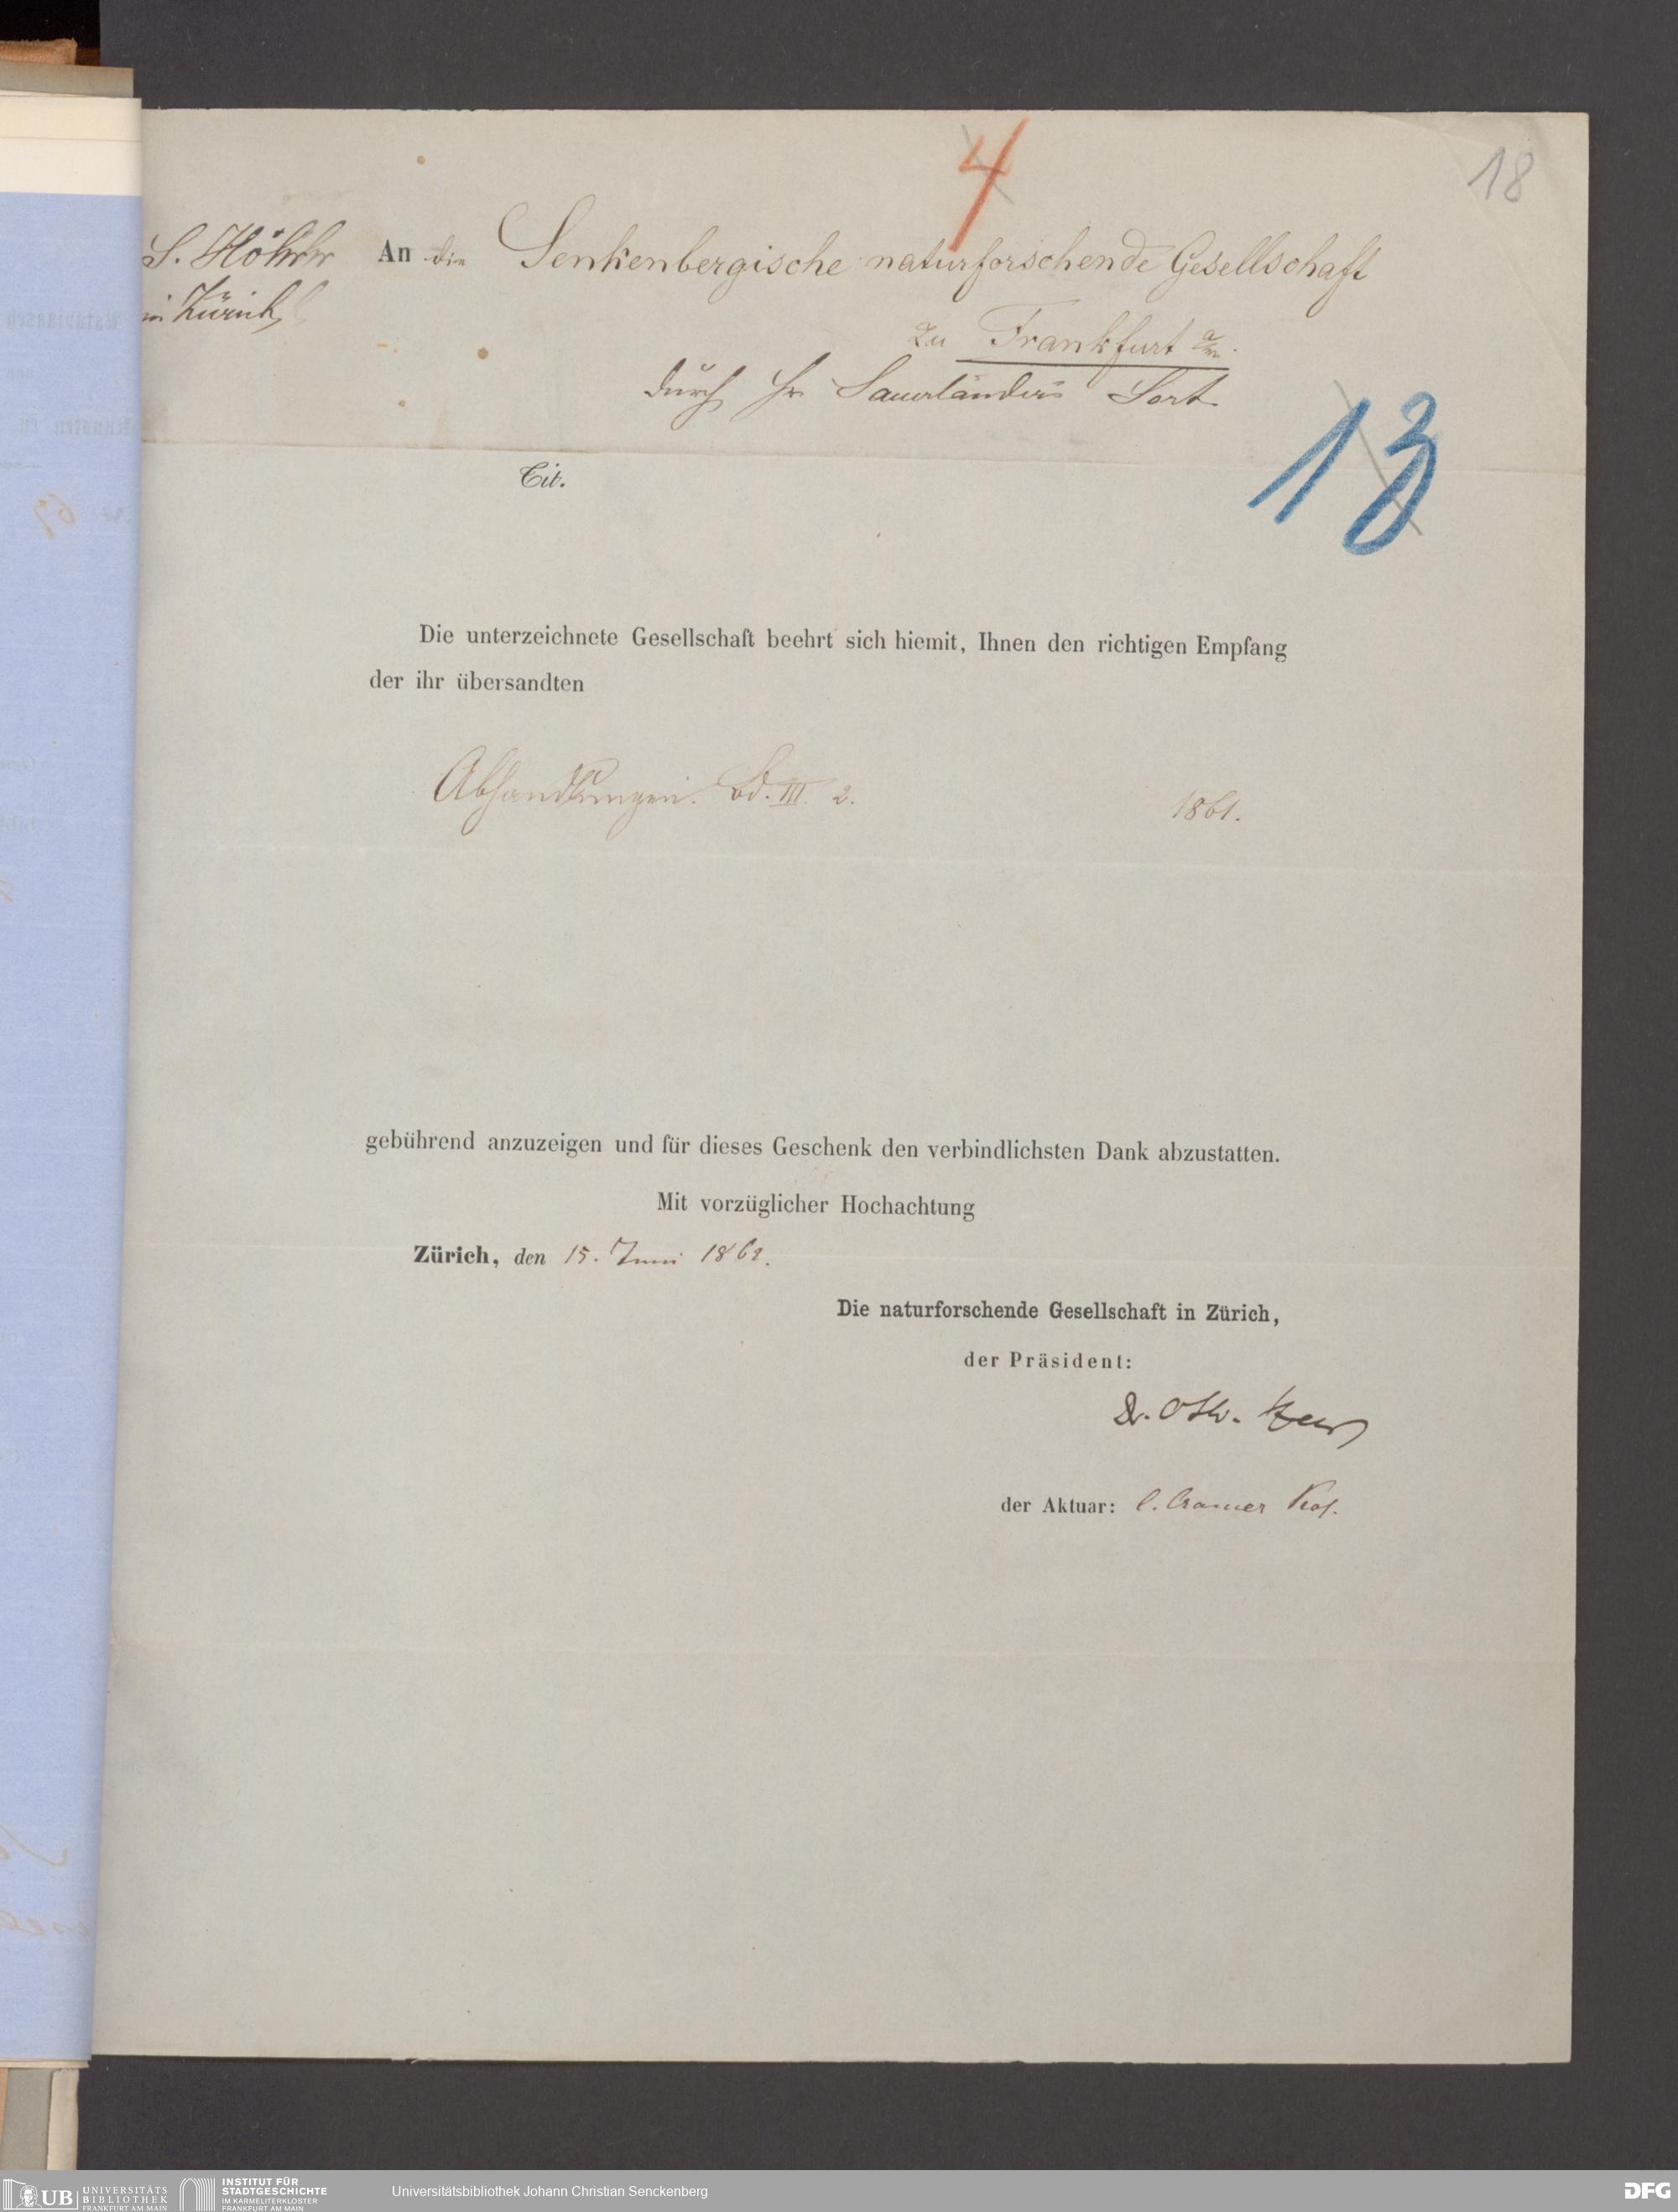 4
18
S. Höhr
in Zürich
An die Senkenbergische naturforschende Gesellschaft
zu Frankfurt a/m.
durch Hr Sauerländers Sort.
13
Tit.
Die unterzeichnete Gesellschaft beehrt sich hiemit, Ihnen den richtigen Empfang
der ihr übersandten
Abhandlungen. Bd. III. 2. 1861.
gebührend anzuzeigen und für dieses Geschenk den verbindlichsten Dank abzustatten.
Mit vorzüglicher Hochachtung
Zürich, den 15. Juni 1862.
Die naturforschende Gesellschaft in Zürich,
der Präsident:
Dr. Osw. Heer
der Aktuar: C. Cramer Prof.
UB UNIVERSITÄTS
BIBLIOTHEK
FRANKFURT AM MAIN
INSTITUT FÜR
STADTGESCHICHTE
IM KARMELITERKLOSTER
FRANKFURT AM MAIN
Universitätsbibliothek Johann Christian Senckenberg
DFG